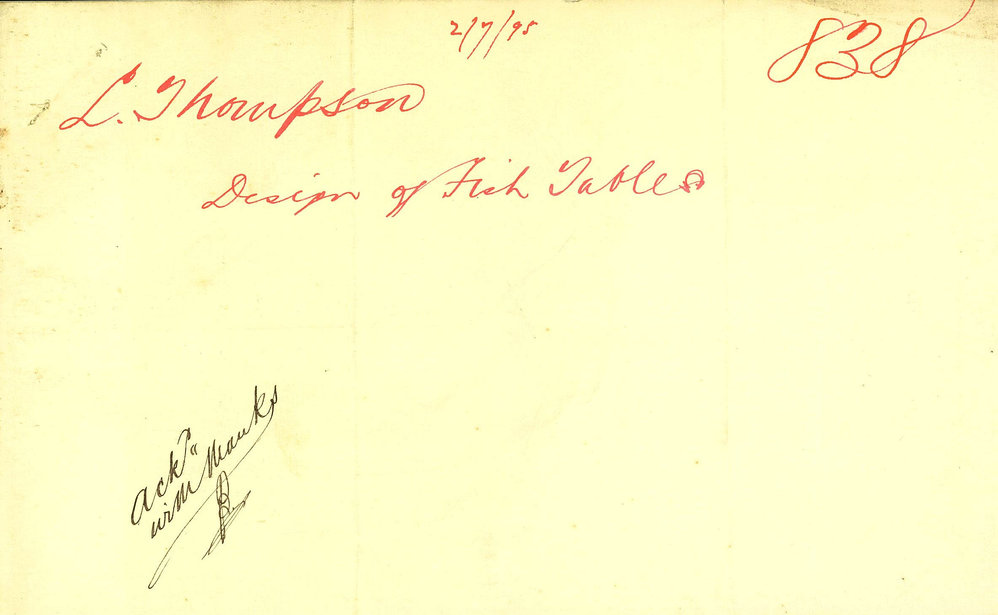 2/7/95
838
L. Thompson
Design of Fish Tables
Ackd
with thanks